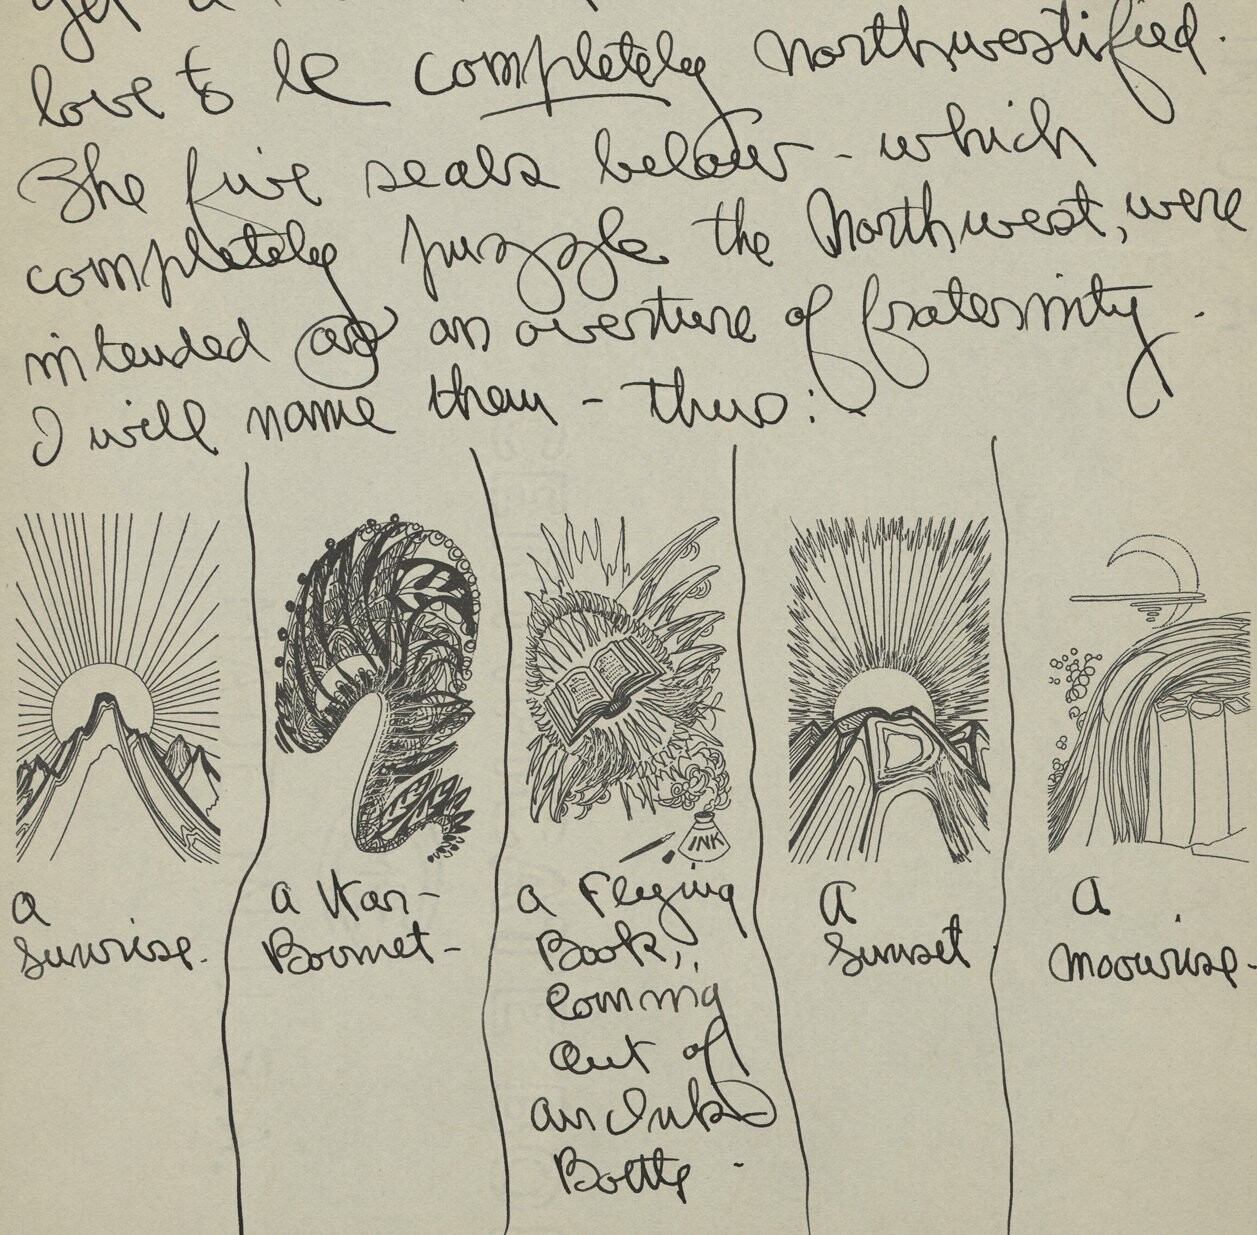 love to be completely northwestified.
The five seals below - which
completely puzzle the Northwest, were
intended as an overture of fraternity.
I will name them - thus:
INK
a
sunrise.
a War-
Bonnet-
a Flying
Book,
coming
out of
an Ink
Bottle -
a
sunset
a
moonrise-